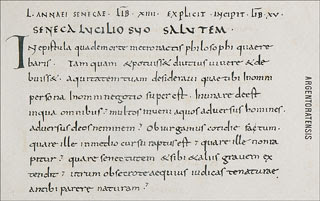 L. ANNAEI SENECAE · LIB · XIIII · EXPLICIT · INCIPIT · LIB · XV ·
SENECA LUCILIO SUO SALUTEM ·
In epistula qua de morte metronactis philosophi quaere
baris. Tamquam & potuisse& diutius uiuere & de
buisse. aequitatem tuam desideraui quae tibi in omni
persona in omni negotio superest. In una re deest
in qua omnibus. multos inueni aequos aduersus homines.
aduersus deos neminem? Obiurgamus cotidie fatum.
quare ille in medio cursu raptus est? quare ille non ra
pitur? quare senectutem & sibi & aliis grauem ex
tendit? utrum obsecro te aequius iudicas te naturae
an tibi parere naturam?
ARGENTORATENSIS